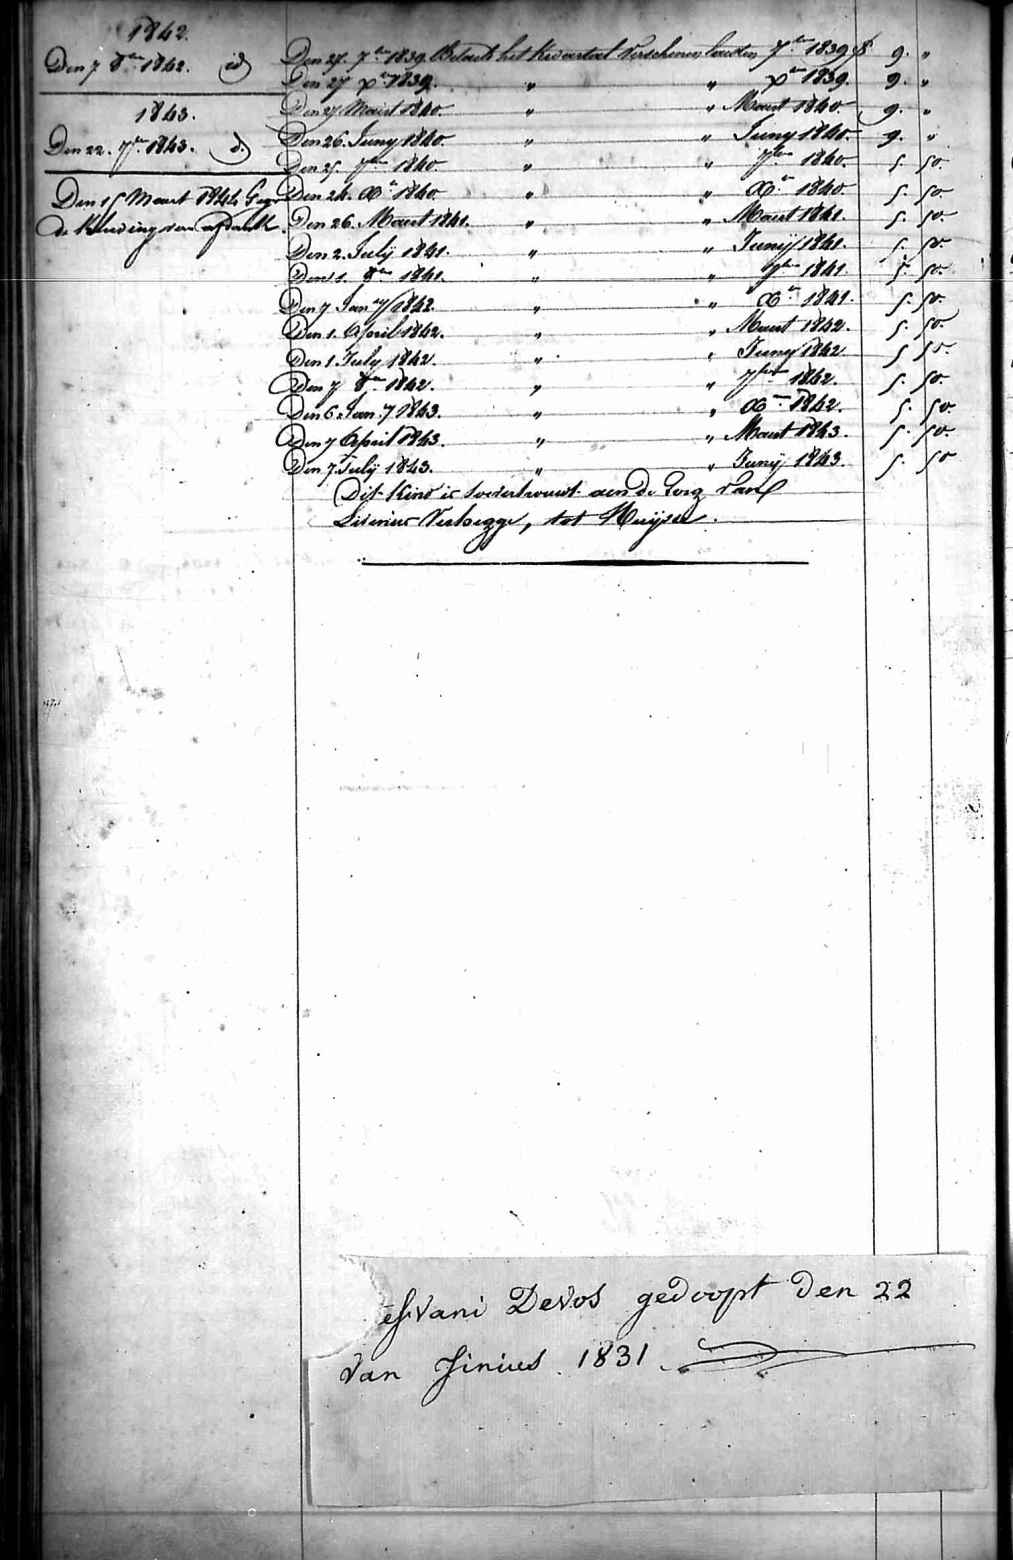 1842.
Den 7 8bre 1842. id
1843.
Den 22. 7bre 1843. d.
Den 15 Maart 1844
de kleeding
Den 27. 7bre 1839 Betaald het kwartaal verschenen laatsten 7bre 1839 f 9. "
Den 27 Xbre 1839. " " Xbre 1839. 9. "
Den 27 Maart 1840. " " Maart 1840. 9. "
Den 26. Juny 1840. " " Juny 1840. 9. "
Den 25. 7bre 1840. " " 7bre 1840. 5. 50.
Den 24. Xbre 1840. " " Xbre 1840 5. 50.
Den 26. Maart 1841. " " Maart 1841. 5. 50.
Den 2. Julij 1841. " " Junij 1841. 5. 50.
Den 1. 8bre 1841. " " 7bre 1841 5. 50.
Den 7 Jany 1842. " " Xbre 1841. 5. 50.
Den 1. April 1842. " " Maart 1842. 5. 50.
Den 1. July 1842. " " Juny 1842 5 50.
Den 7 8bre 1842. " " 7bre 1842. 5. 50.
Den 6. Jany 1843. " " Xbre 1842. 5. 50.
Den 7 April 1843. " " Maart 1843. 5. 50.
Den 7 Julij 1843. " " Junij 1843. 5. 50
Dit kind is toevertrouwt aen de zorg van
Livinus Verhegge, tot
Devos gedoopt den 22
van Jinius 1831